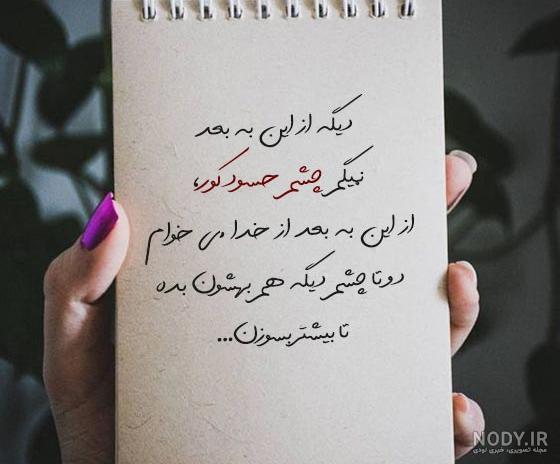 دیگه از این به بعد
نمیگم چشم حسود کور،
از این به بعد از خدا می خوام
دو تا چشم دیگه هم بهشون بده
تا بیشتر بسوزن...
NODY.IR
مجله تصویری، خبری نودی